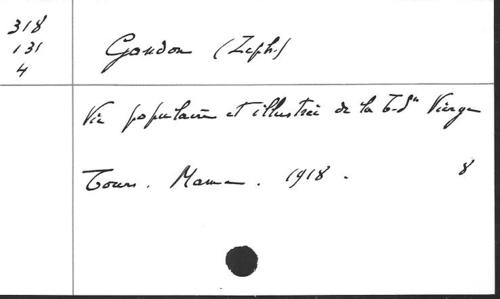 318
131
4
Gandon (Zeph.)
Vie populaire et illustrée de la T-Ste Vierge
Tours. Mame. 1918. 8